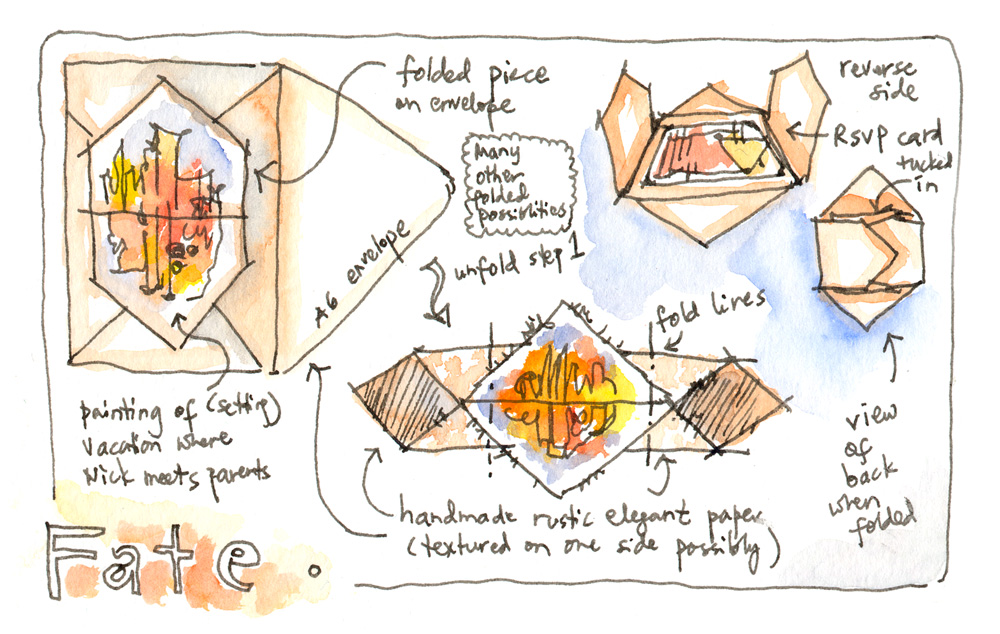 folded piece
on envelope
Many
other
folded
possiblities
reverse
side
RSVP card
tucked
in
A6 envelope
unfold step 1
fold lines
painting of (setting)
vacation where
Nick meets parents
view
of
back
when
folded
handmade rustic elegant paper
(textured on one side possibly)
Fate.